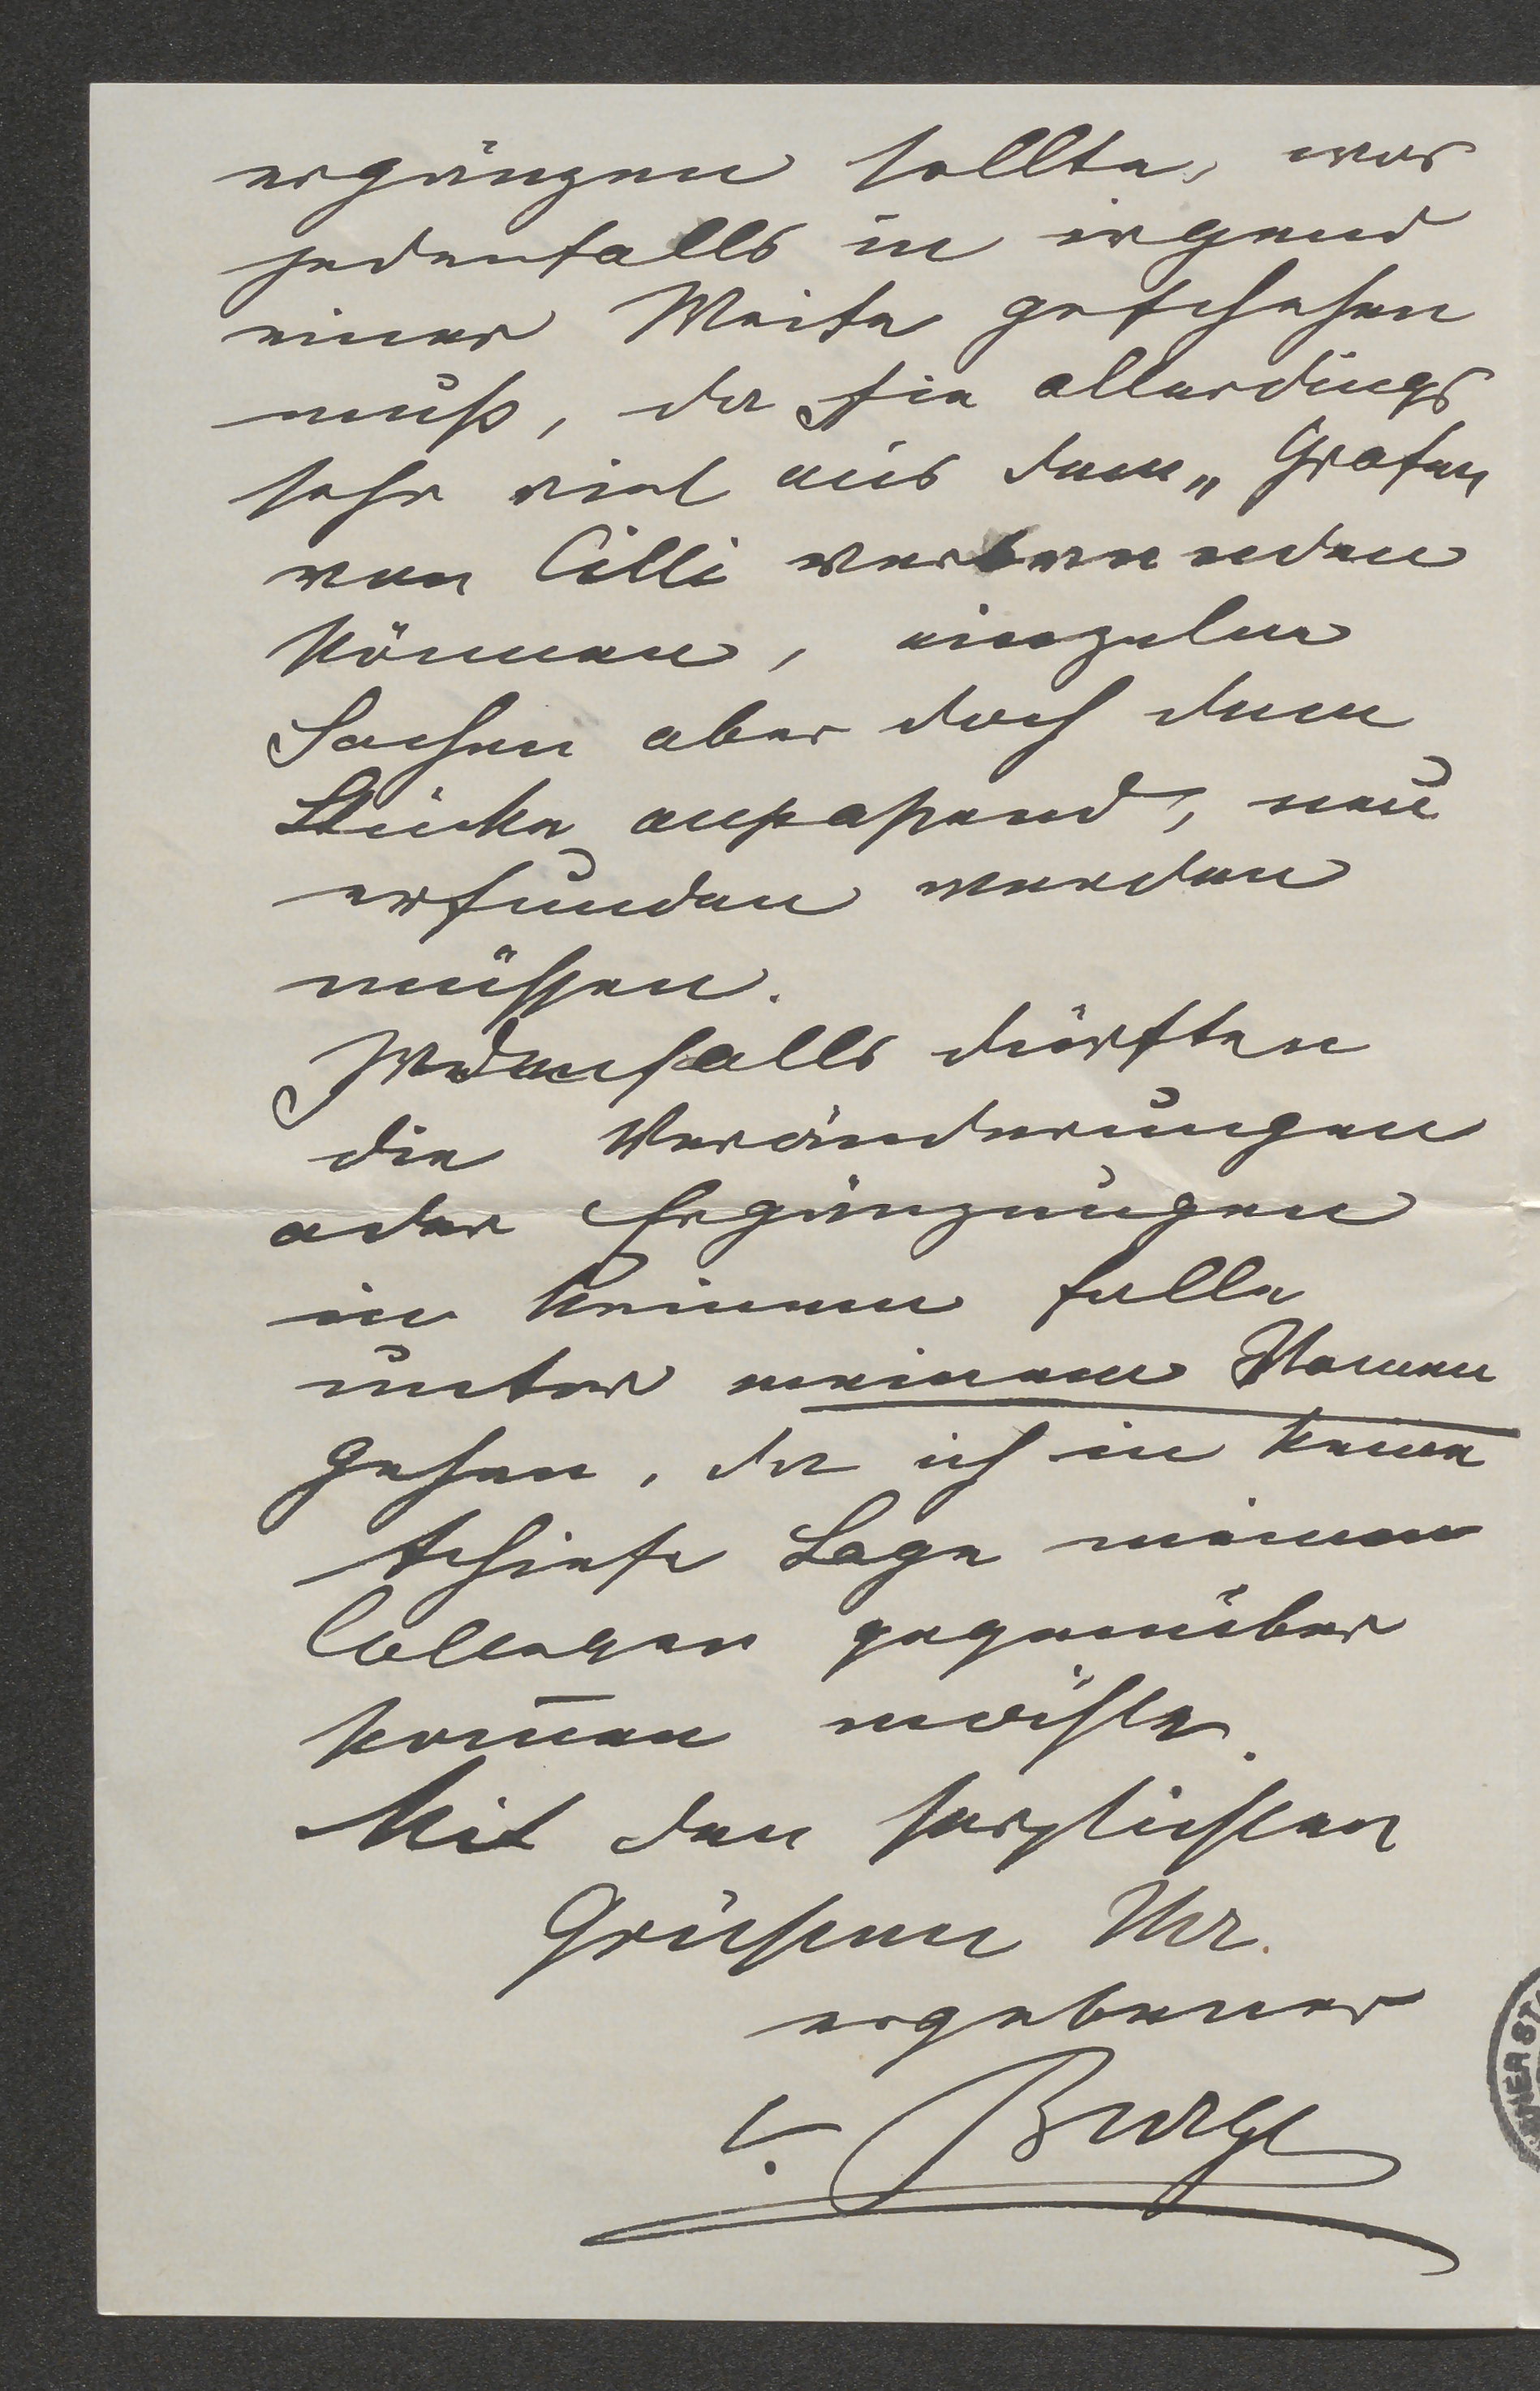 ergänzen sollte, was
jedenfalls in irgend
einer Weise geschehen
muß, da sie allerdings
sehr viel aus dem „Grafen
von Cilli verwenden
können, einzelne
Sachen aber doch dem
Stücke anpaßend, neu
erfunden werden
müssen.
Jedenfalls dürften
die Veränderungen
oder Ergänzungen
in keinem Falle
unter meinem Namen
gehen, da ich in keine
schiefe Lage meinen
Collegen gegenüber
kom̅en möchte.
Mit den herzlichsten
Grüßen Ihr
ergebener
v. Burge